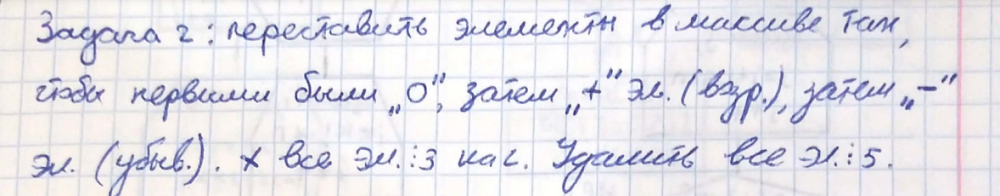 Задача 2: переставить элементы в массиве так,
чтобы первыми были „0“, затем „+“ эл. (возр.), затем „–“
эл. (убыв.). × все эл.⋮3 на 2. Удалить все эл.⋮5.